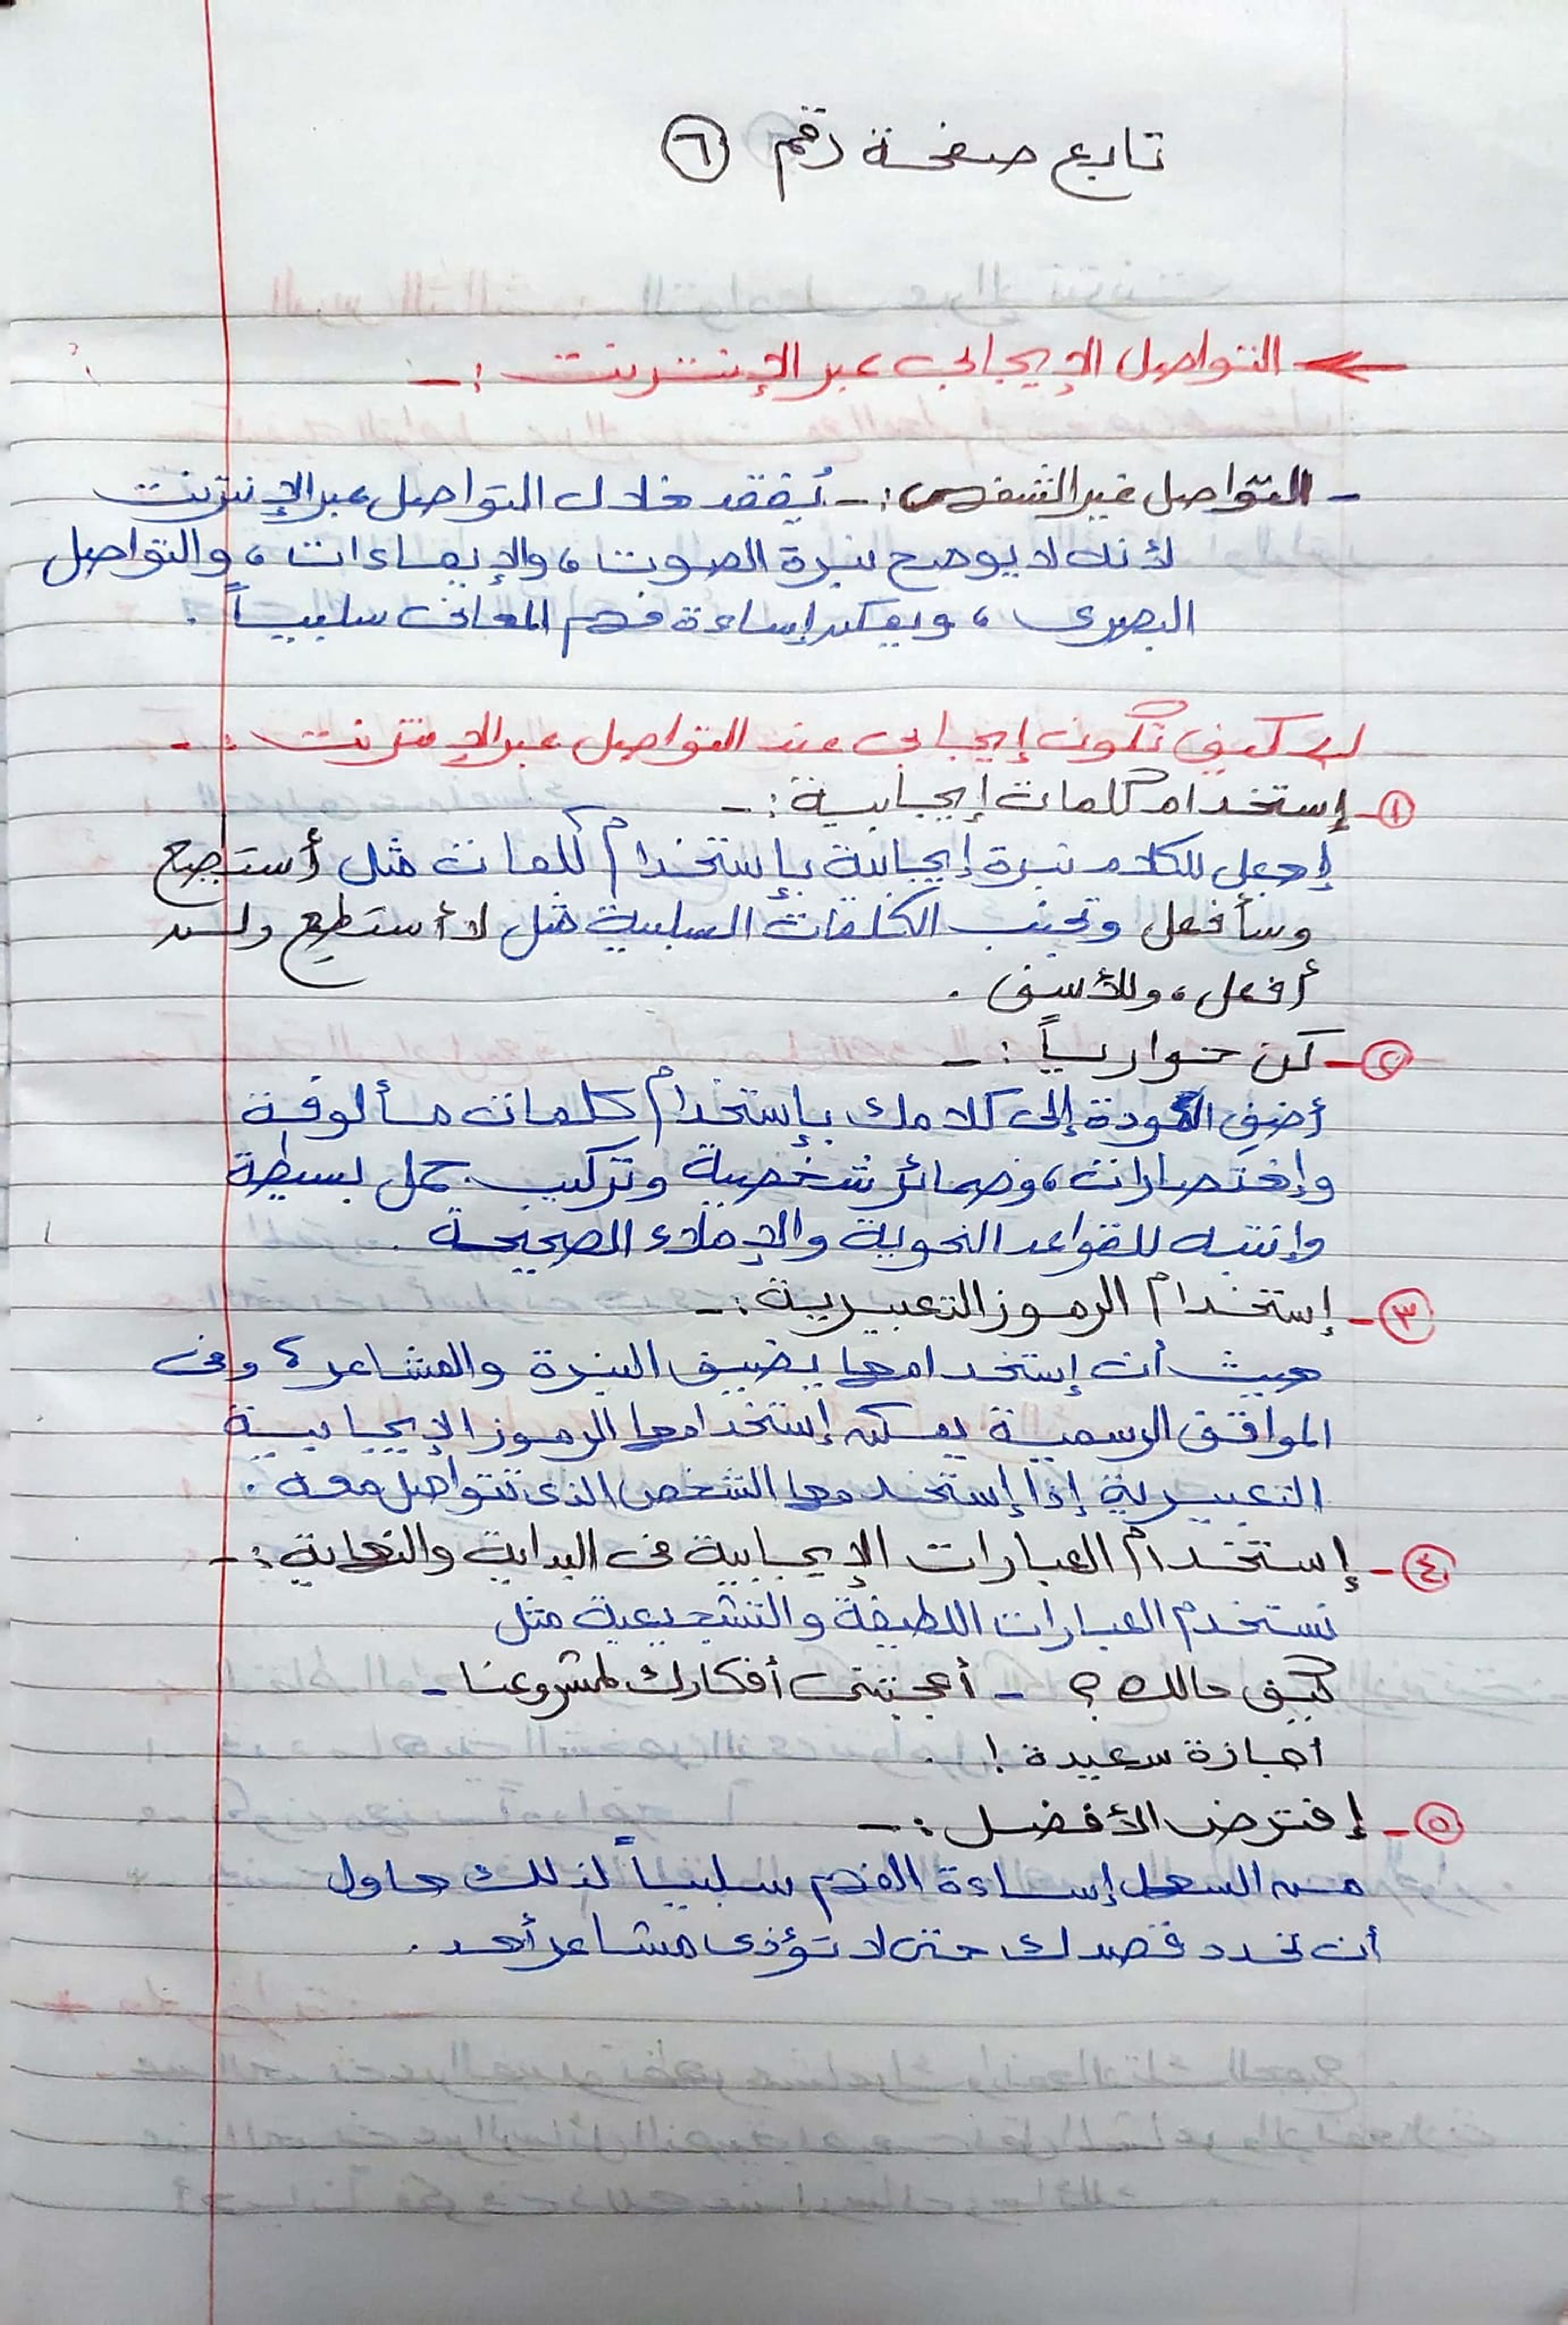 تابع صفحة رقم ٦
← التواصل الإيجابى عبر الإنترنت :-
- التواصل غير الشفهى :- يُفقد خلال التواصل عبر الإنترنت
لأنه لا يوضح نبرة الصوت ، والإيماءات ، والتواصل
البصرى ، ويمكن إساءة فهم المعانى سلبياً .
كيف تكون إيجابى عند التواصل عبر الإنترنت :-
١- إستخدام كلمات إيجابية :-
إجعل للكلام نبرة إيجابية بإستخدام كلمات مثل أستطيع
وسأفعل وتجنب الكلمات السلبية مثل لا أستطيع ولن
أفعل ، وللأسف .
٢- كن حوارياً :-
أضف المودة إلى كلامك بإستخدام كلمات مألوفة
وإختصارات ، وضمائر شخصية وتركيب جمل بسيطة
وإنتبه للقواعد النحوية والإملاء الصحيحة .
٣- إستخدام الرموز التعبيرية :-
حيث أن إستخدامها يضيف النبرة والمشاعر ، وفى
المواقف الرسمية يمكن إستخدامها الرموز الإيجابية
التعبيرية إذا إستخدمها الشخص الذى تتواصل معه .
٤- إستخدام العبارات الإيجابية فى البداية والنهاية :-
نستخدم العبارات اللطيفة والتشجيعية مثل
كيف حالك ؟ - أعجبتنى أفكارك لمشروعنا -
أجازة سعيدة ! .
٥- إفترض الأفضل :-
من السهل إساءة الفهم سلبياً لذلك حاول
أن تحدد قصدك حتى لا تؤذى مشاعر أحد .